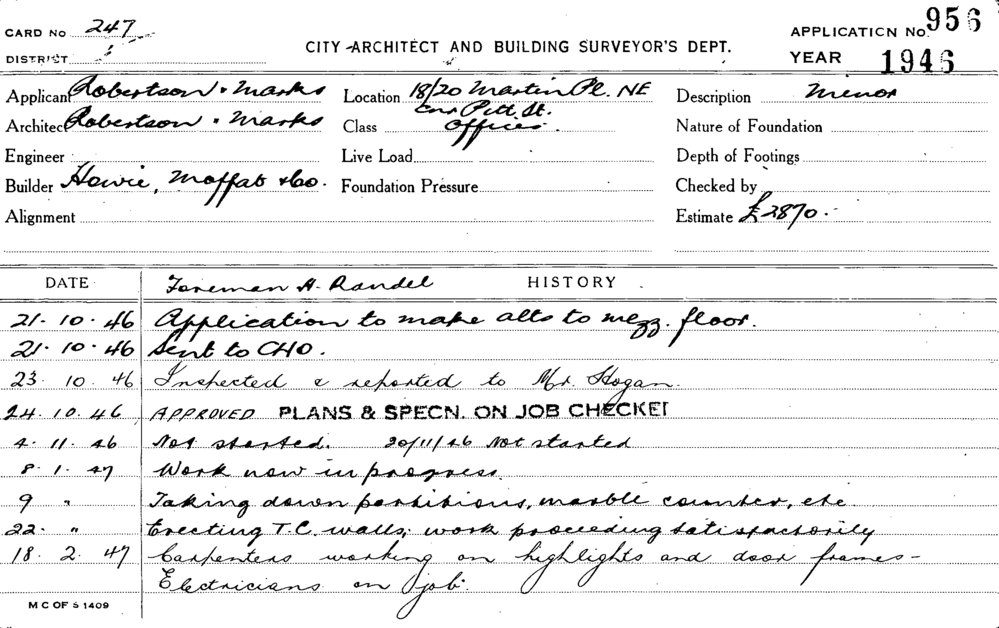 CARD No 247
CITY ARCHITECT AND BUILDING SURVEYOR'S DEPT.
APPLICATION No. 956
DISTRICT
YEAR 1946
Applicant Robertson & Marks Location 18/20 Martin Pl. NE Description Minor
Cnr Pitt St.
Architect Robertson & Marks Class Offices Nature of Foundation
Engineer Live Load Depth of Footings
Builder Howie, Moffat & Co. Foundation Pressure Checked by
Alignment Estimate £2870.
DATE Foreman H. Randel HISTORY
21. 10. 46 Application to make alts to mezz. floor.
21. 10. 46 Sent to CHO.
23. 10. 46 Inspected & reported to Mr. Hogan.
24. 10. 46 APPROVED PLANS & SPECN. ON JOB CHECKED
4. 11. 46 Not started. 20/11/46 Not started
8. 1. 47 Work now in progress.
9 " Taking down partitions, marble counter, etc
22. " Erecting T.C. walls; work proceeding satisfactorily
18. 2. 47 Carpenters working on highlights and door frames -
Electricians on job.
M C OF S 1409